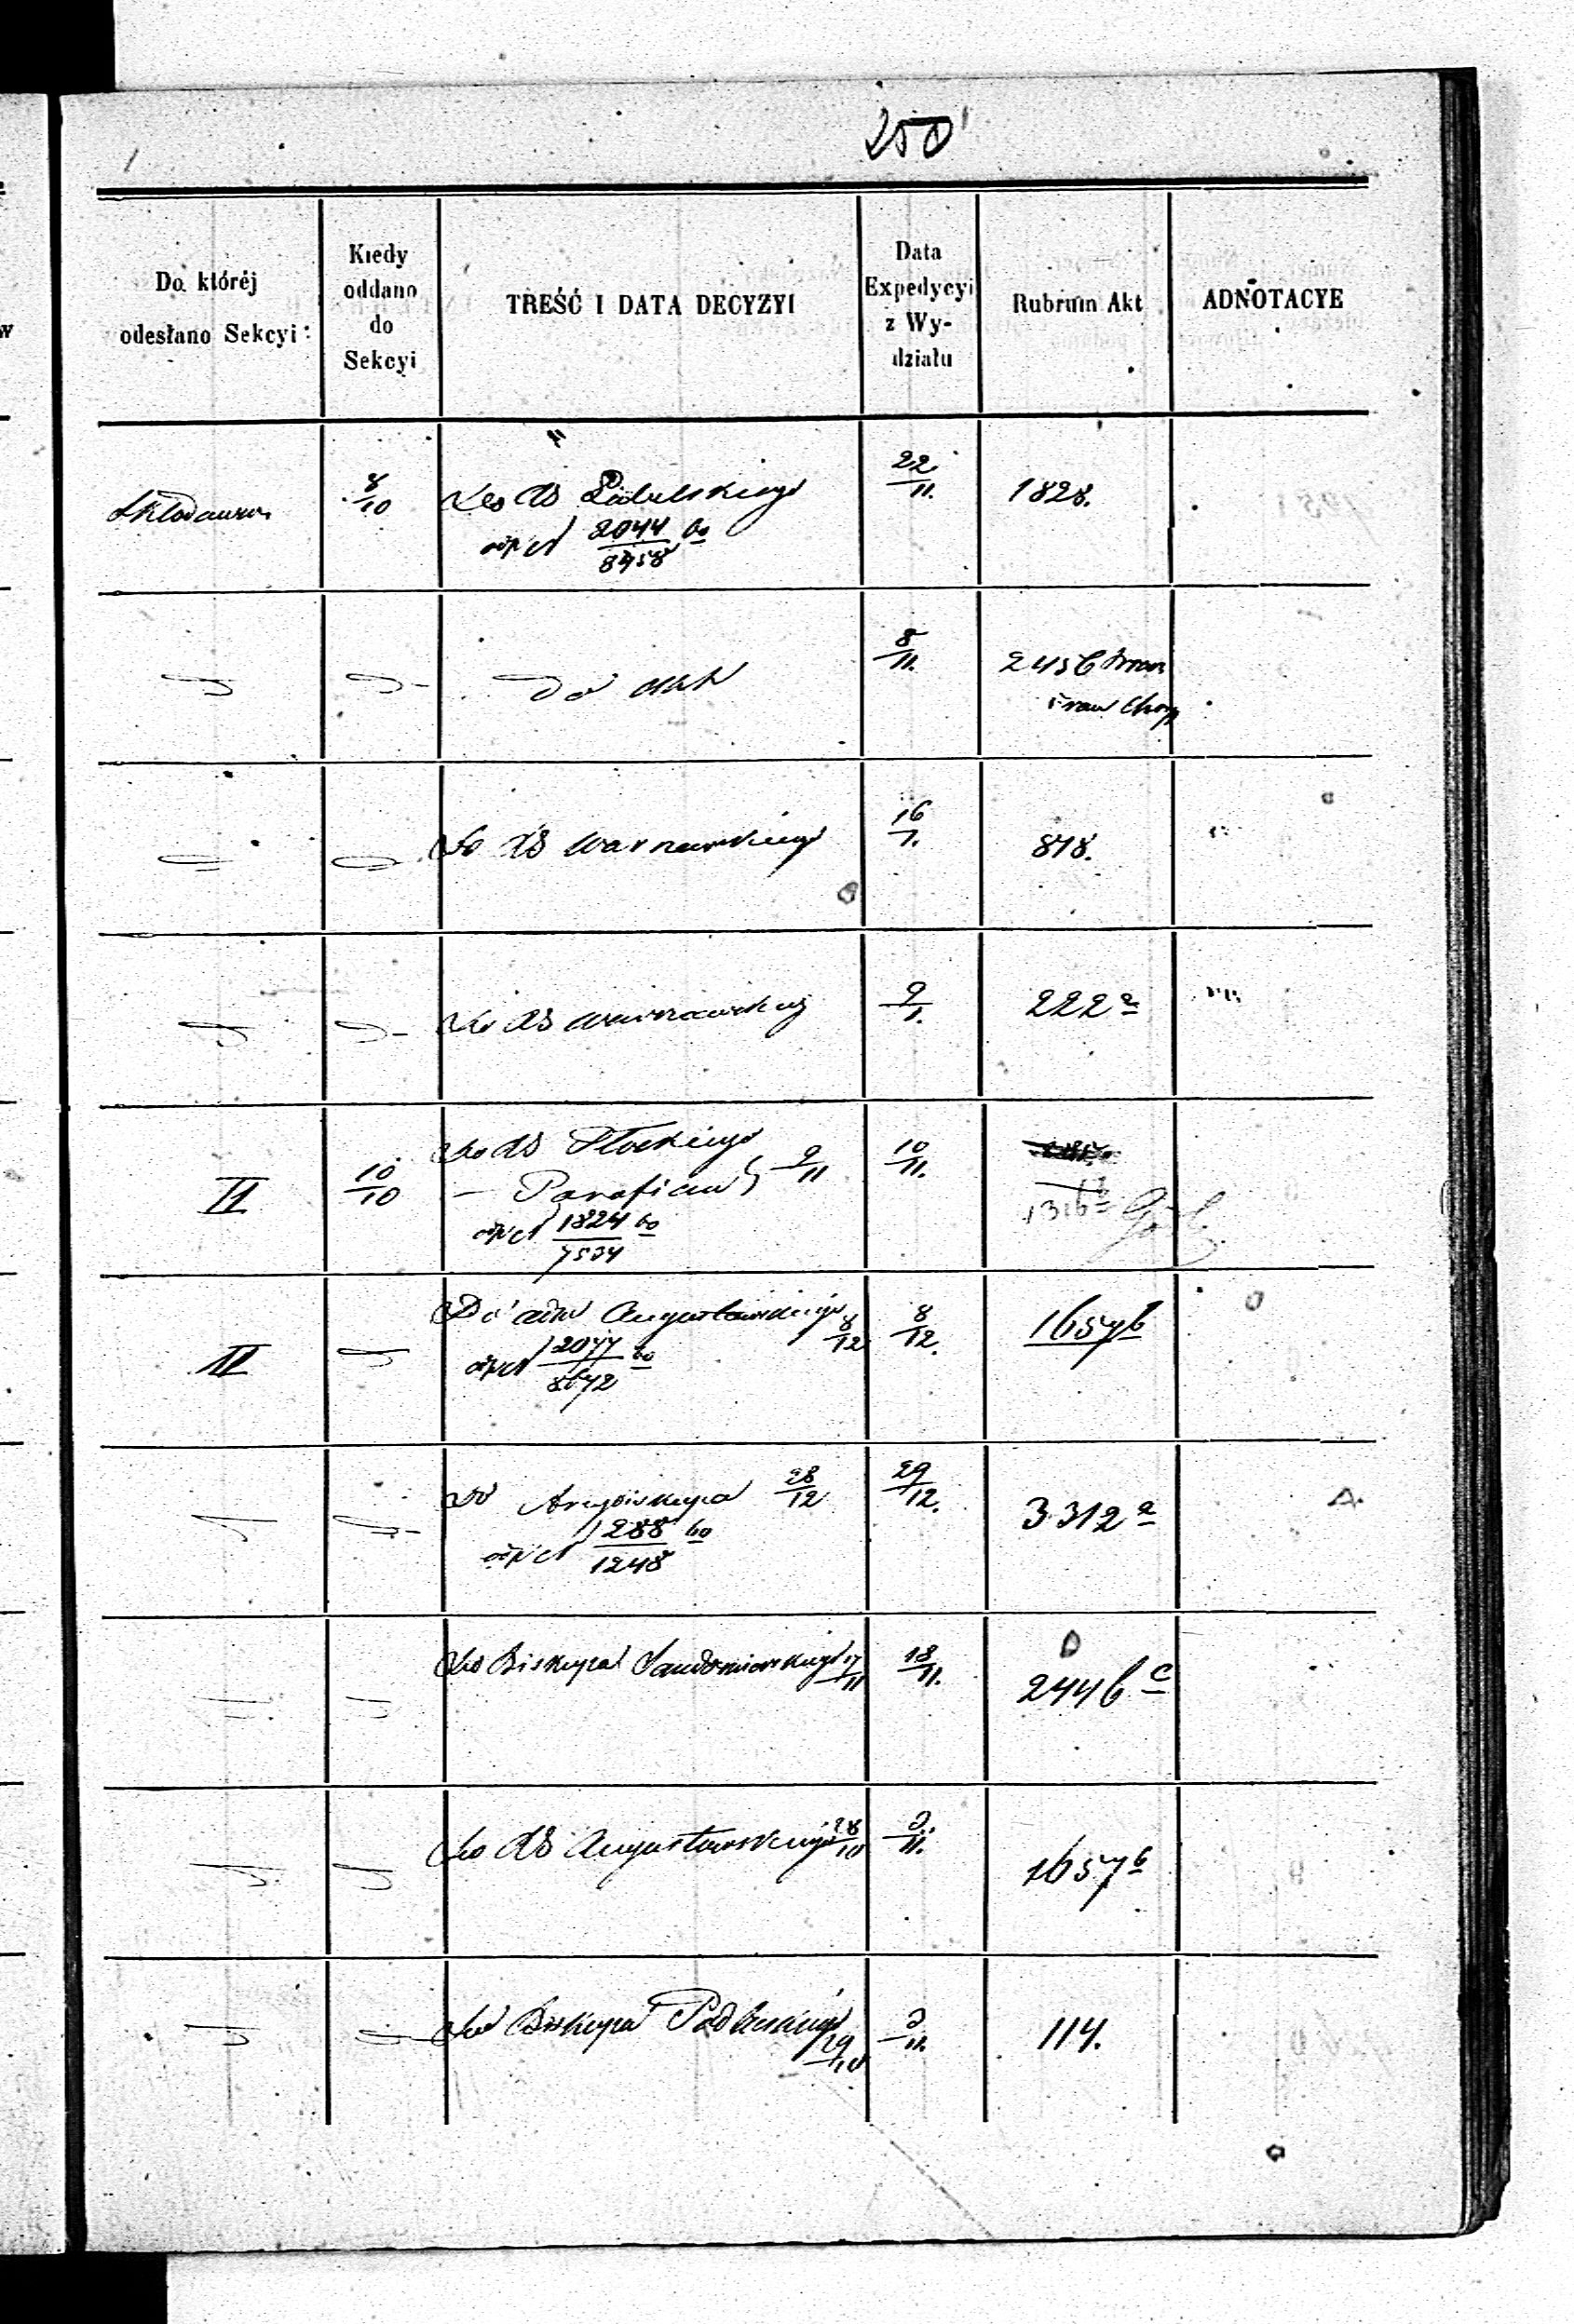 250
Do któréj
odesłano Sekcyi:
Kiedy
oddano
do
Sekcyi
TREŚĆ I DATA DECYZYI
Data
Expedycyi
z Wy-
działu
Rubrum Akt
ADNOTACYE
8/10
Do RG Lubelskiego
2044/8458
22/11.
1828.
Do akt
8/11.
2456
Do RG Warszawskiego
16/1.
878.
Do RG Warszawskieg
9/1.
222 a
II
10/10
Do RG Płockiego
— Parafian } 9/11
1824/7534
10/11.
1316
II
Do Augustowskiego 8/12
2077/8672
8/12.
1657 b
Do Arcybiskupa 28/12
288/1248
29/12.
3312 a
Do Biskupa Sandomierskiego 17/11
18/11.
2446 c
Do RG Augustowskiego 28/10
2/11.
1657 b
Do Biskupa Podlaskiego
29/10
2/11.
114.